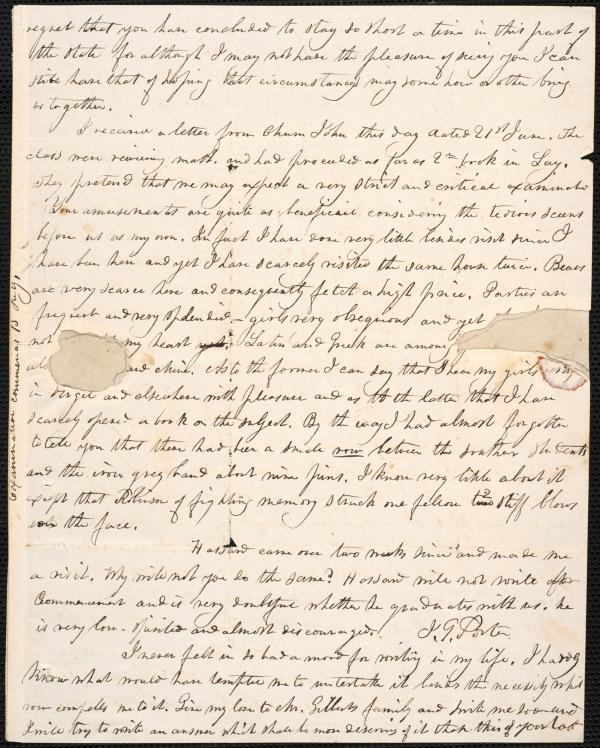 regret that you have concluded to stay so short a time in this part of
the State for although I may not have the pleasure of seeing you I can
still have that of hoping that circumstances may some how or other bring
us together.
I received a letter from Chum John this day dated 21st June. The
class were reviewing math. and had proceeded as far as 2nd book in Lay.
They pretend that we may expect a very strict and critical examinatio
Your amusements are quite as beneficial considering the tedious scenes
before us as my own. In fact I have done very little besides visit since I
have been here and yet I have scarcely visited the same house twice. Beaus
are very scarce here and consequently fetch a high price. Parties are
frequent and very splendid – girls very obsequious and yet
not my heart yet. Latin and Greek are among
and mine. As to the former I can say that I hear my girls
in Virgil and elsewhere with pleasure and as to the latter that I have
scarcely opened a book on the subject. By the way I had almost forgotten
to tell you that there had been a single row between the southern students
and the iron grey band about nine pins. I know very little about it
except that Robinson of fighting memory struck one fellow 2 stiff blows
in the face.
Hassard came over two weeks since and made me
a visit. Why will not you do the same? Hassard will not write for
Commencement and is very doubtful whether he graduates with us. he
is very low-spirited and almost discouraged. J. G. Porter
I never felt in so bad a mood for writing in my life. I hardly
know what would have tempted me to undertake it besides the necessity which
now compels me to it. Give my love to Mr. Gilberts family and write me soon and
I will try to write an answer which shall be more deserving of it than this of your last
Examination commences 13 July